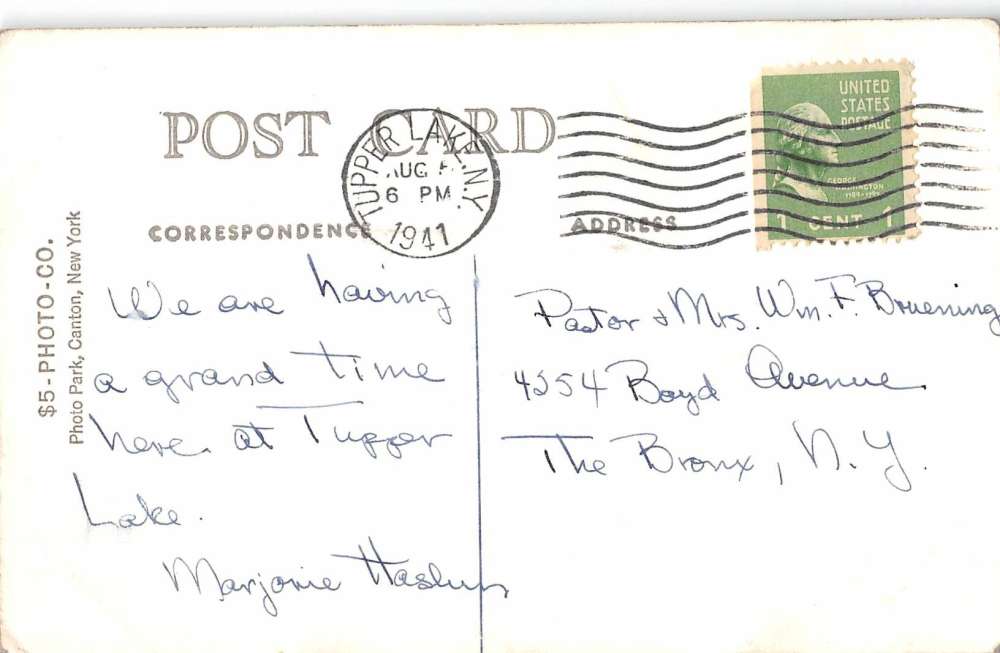 POST CARD
TUPPER LAKE, N.Y.
AUG
6 PM
1941
UNITED
STATES
POSTAGE
GEORGE
WASHINGTON
1 CENT 1
CORRESPONDENCE
ADDRESS
$5-PHOTO-CO.
Photo Park, Canton, New York
We are having
a grand time
here at Tupper
Lake.
Marjorie
Pastor & Mrs. Wm. F. Bruening
4254 Boyd Avenue
The Bronx, N.Y.